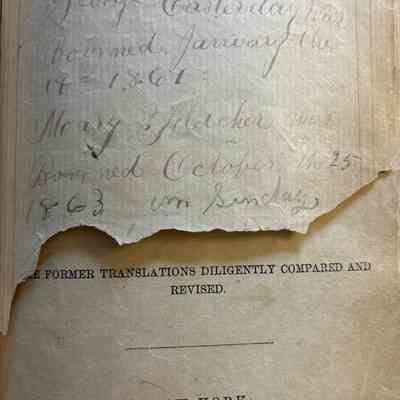 George Easterday was
bourned January the
19 1861
Meary Fletcher was
bourned October the 25
1863 um Sunday
FORMER TRANSLATIONS DILIGENTLY COMPARED AND
REVISED.
YORK: